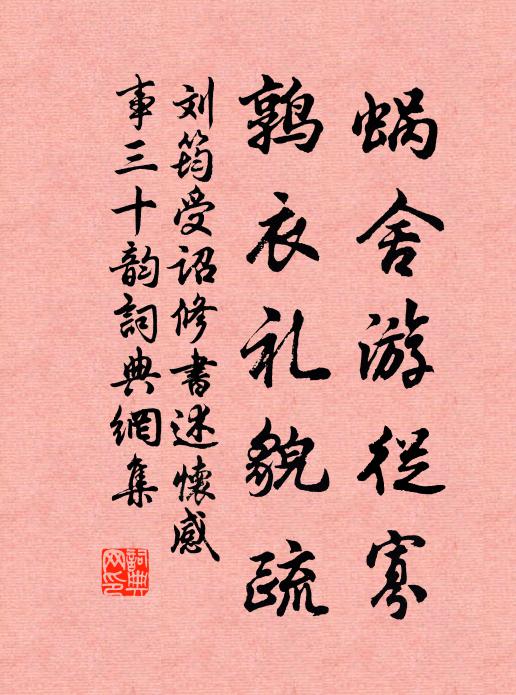 蜗舍游从寡
鹑衣礼貌疏
刘筠受诏修书述懷感
事三十韵詞典網集
詞典网印